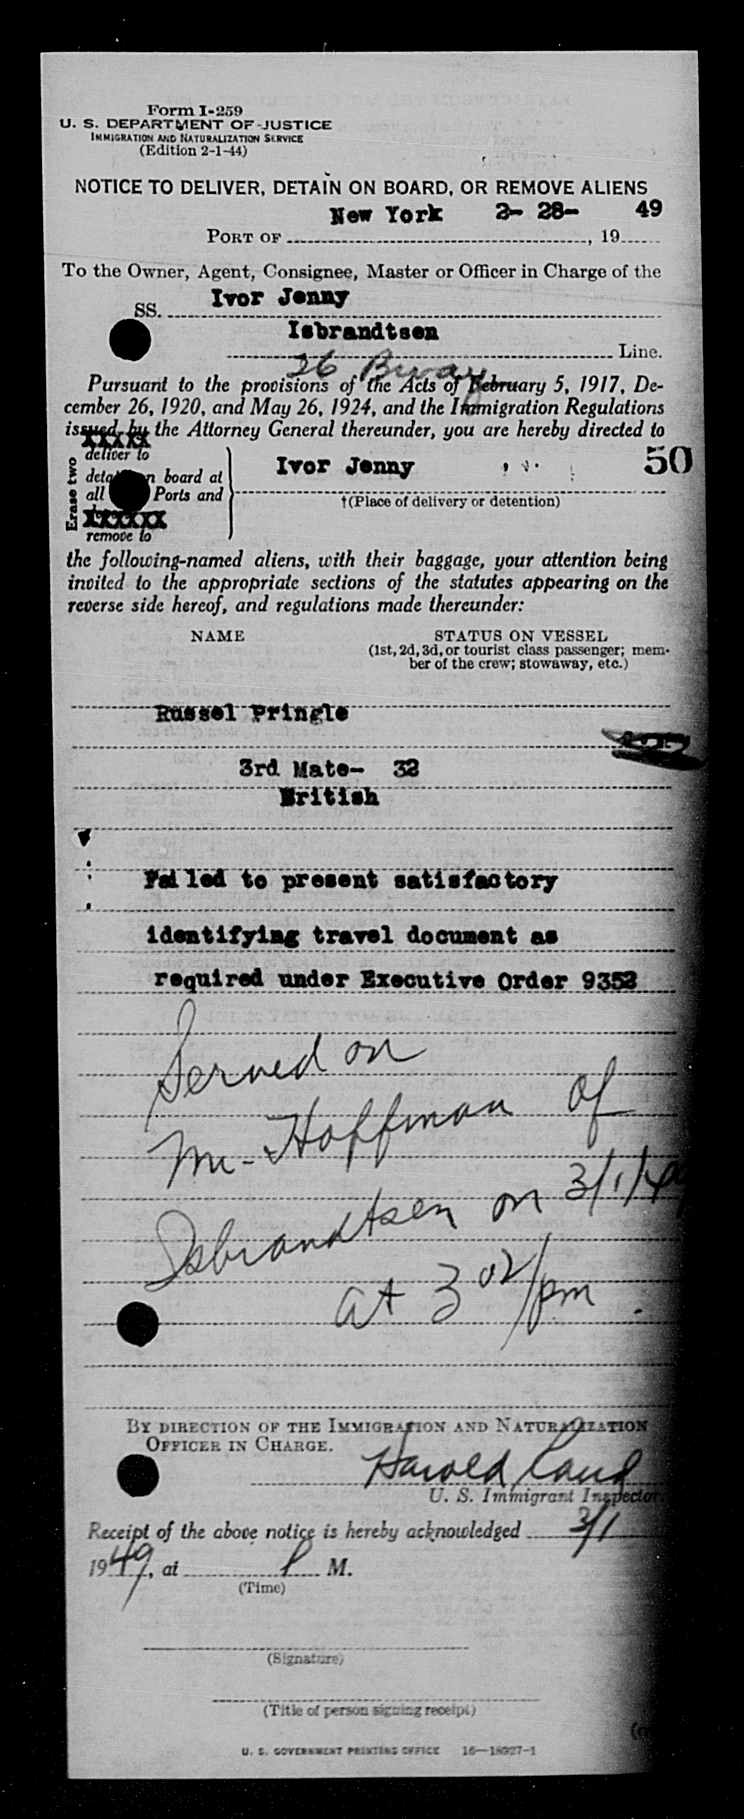 Form I-259
U. S. DEPARTMENT OF JUSTICE
IMMIGRATION AND NATURALIZATION SERVICE
(Edition 2-1-44)
NOTICE TO DELIVER, DETAIN ON BOARD, OR REMOVE ALIENS
New York 2- 28- 49
PORT OF , 19
To the Owner, Agent, Consignee, Master or Officer in Charge of the
SS. Ivor Jenny
Isbrandtsen
Line.
26 Bway
Pursuant to the provisions of the Acts of February 5, 1917, De-
cember 26, 1920, and May 26, 1924, and the Immigration Regulations
issued by the Attorney General thereunder, you are hereby directed to
Erase two
deliver to
detain on board at
all Ports and
remove to
Ivor Jenny 50
†(Place of delivery or detention)
the following-named aliens, with their baggage, your attention being
invited to the appropriate sections of the statutes appearing on the
reverse side hereof, and regulations made thereunder:
NAME STATUS ON VESSEL
(1st, 2d, 3d, or tourist class passenger; mem-
ber of the crew; stowaway, etc.)
Russel Pringle
3rd Mate- 32
British
Failed to present satisfactory
identifying travel document as
required under Executive Order 9352
Served on
Mr- Hoffman of
Isbrandtsen on 3/1/49
at 3 02/pm.
BY DIRECTION OF THE IMMIGRATION AND NATURALIZATION
OFFICER IN CHARGE.
Harold
U. S. Immigrant Inspector.
Receipt of the above notice is hereby acknowledged 3/1
1949, at P M.
(Time)
(Signature)
(Title of person signing receipt)
U. S. GOVERNMENT PRINTING OFFICE 16—18927-1